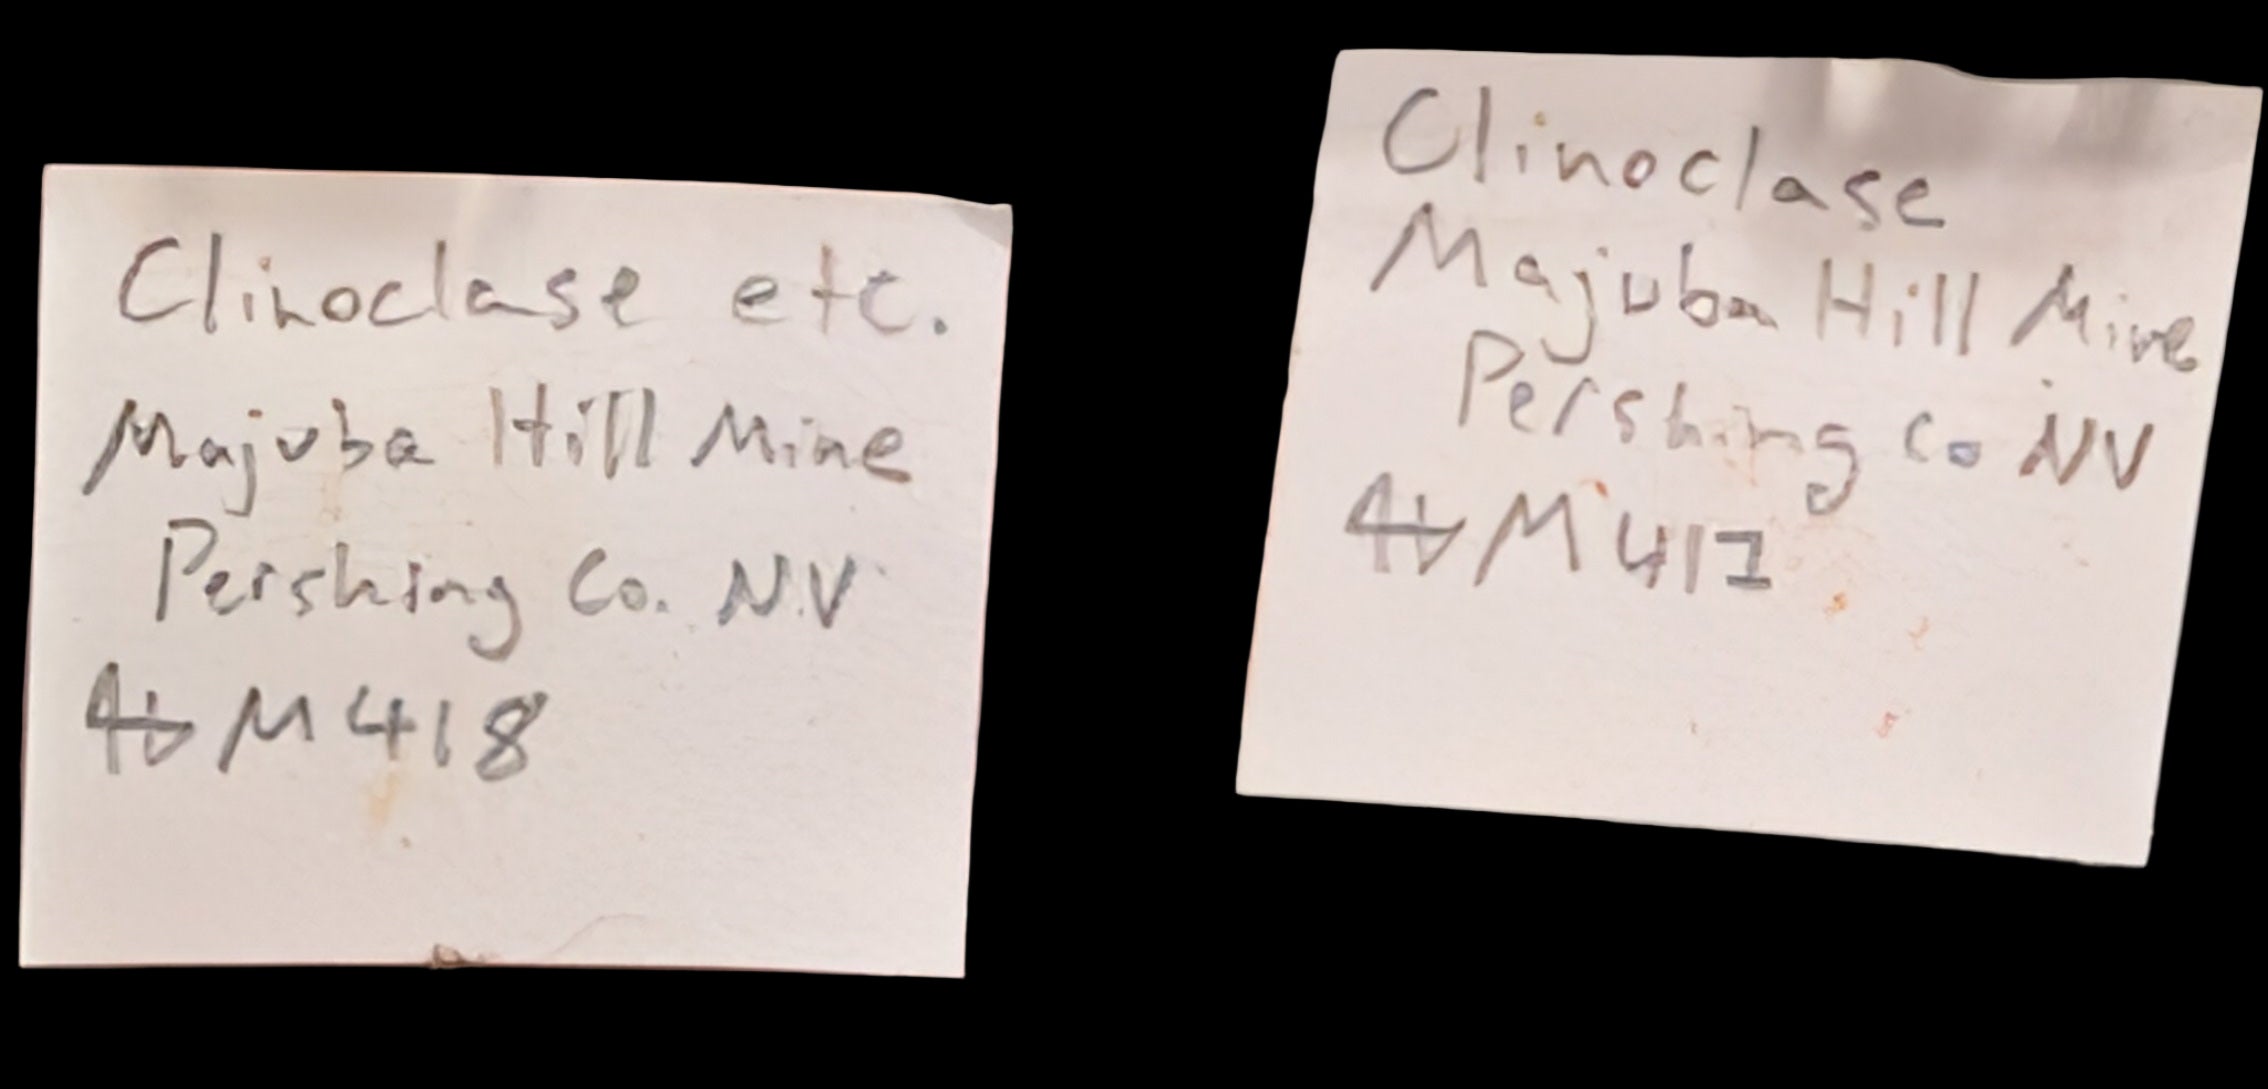 Clinoclase etc.
Majuba Hill Mine
Pershing Co. NV
M418
Clinoclase
Majuba Hill Mine
Pershing Co NV
M417